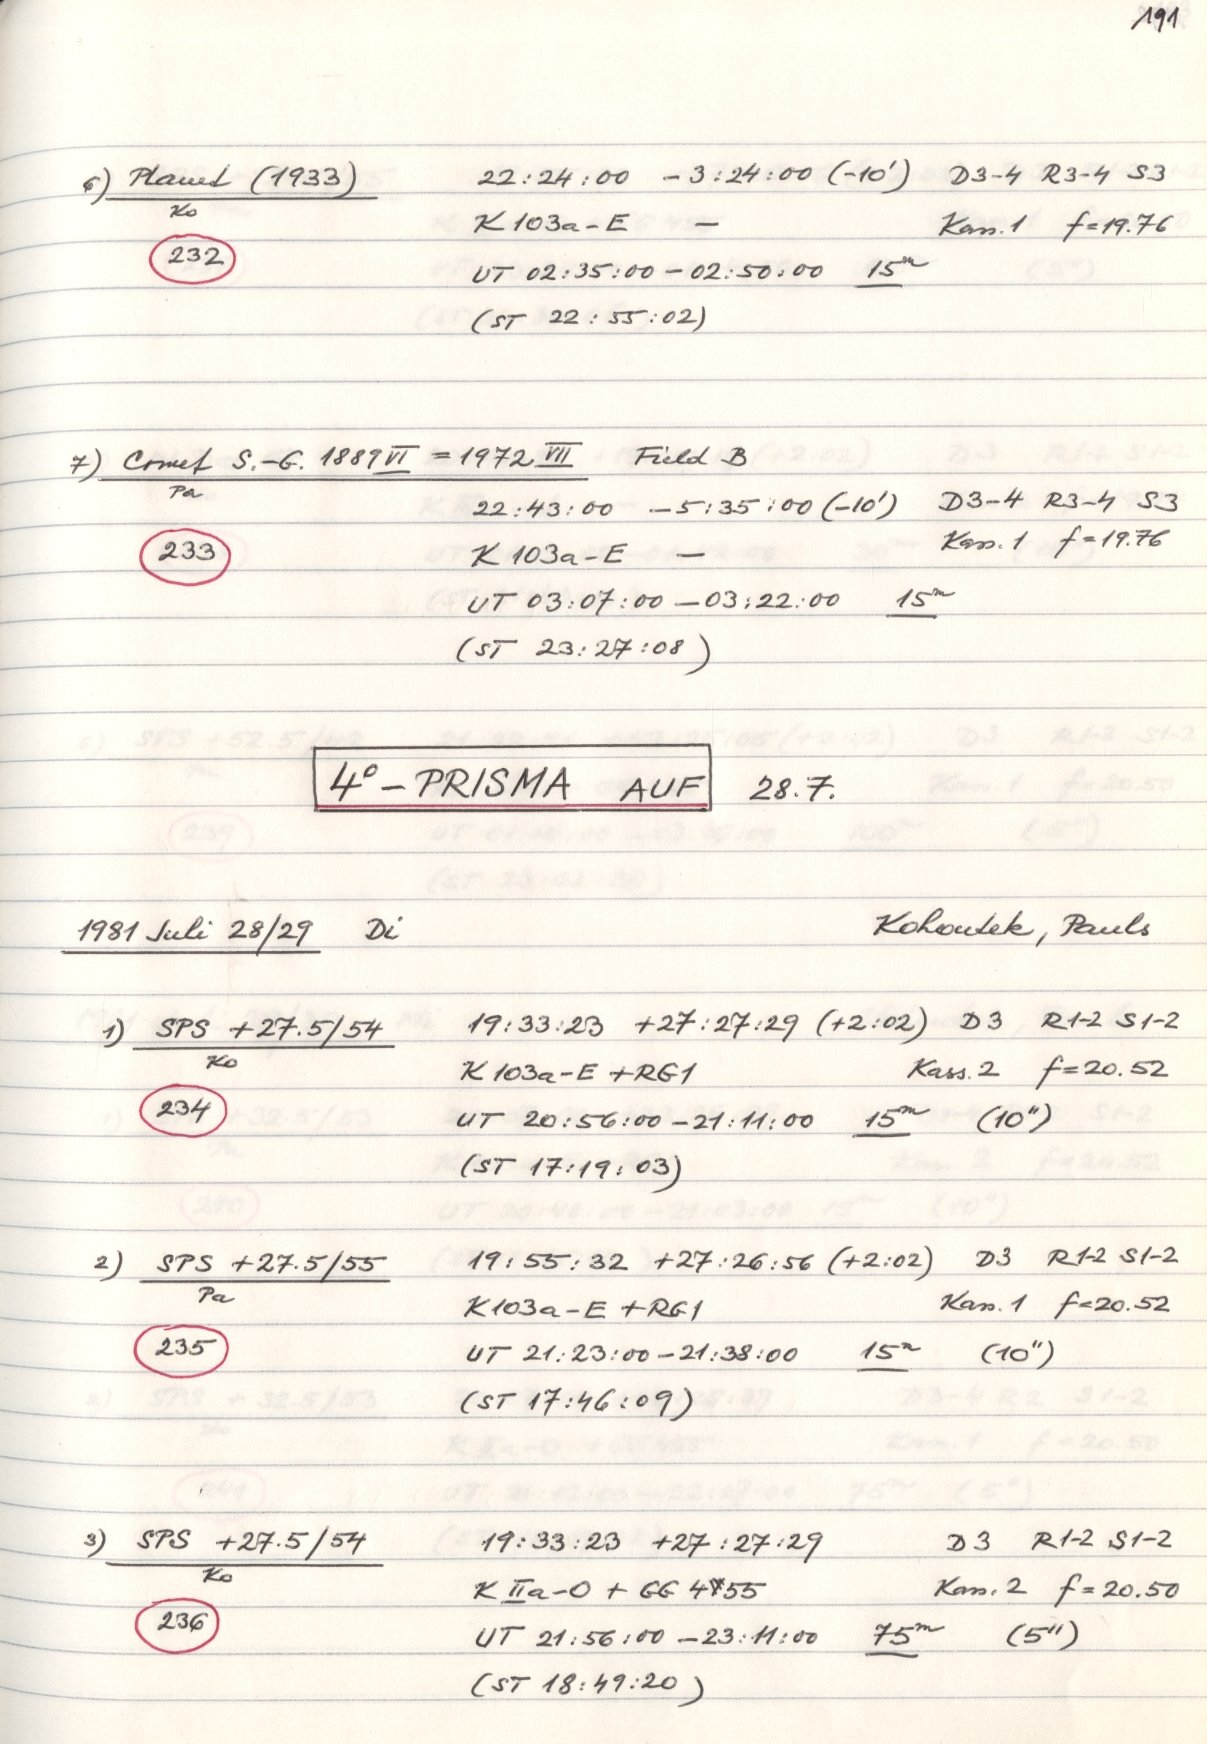 191
6) Planet (1933) 22:24:00 -3:24:00 (-10') D3-4 R3-4 S3
Ko K 103a-E — Kass.1 f=19.76
232 UT 02:35:00-02:50:00 15m
(ST 22:55:02)
7) Comet S.-G. 1889 VI = 1972 VII Field B
Pa 22:43:00 -5:35:00 (-10') D3-4 R3-4 S3
233 K 103a-E — Kass.1 f=19.76
UT 03:07:00-03:22:00 15m
(ST 23:27:08)
4°-PRISMA AUF 28.7.
1981 Juli 28/29 Di Kohoutek, Pauls
1) SPS +27.5/54 19:33:23 +27:27:29 (+2:02) D3 R1-2 S1-2
Ko K 103a-E +RG1 Kass.2 f=20.52
234 UT 20:56:00-21:11:00 15m (10")
(ST 17:19:03)
2) SPS +27.5/55 19:55:32 +27:26:56 (+2:02) D3 R1-2 S1-2
Pa K103a-E +RG1 Kass.1 f=20.52
235 UT 21:23:00-21:38:00 15m (10")
(ST 17:46:09)
3) SPS +27.5/54 19:33:23 +27:27:29 D3 R1-2 S1-2
Ko K IIa-O + GG 455 Kass.2 f=20.50
236 UT 21:56:00-23:11:00 75m (5")
(ST 18:49:20)